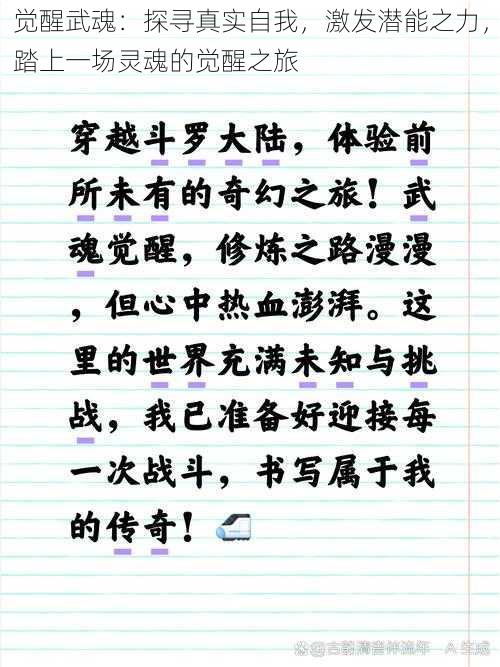 觉醒武魂：探寻真实自我，激发潜能之力，
踏上一场灵魂的觉醒之旅
穿越斗罗大陆，体验前
所未有的奇幻之旅！武
魂觉醒，修炼之路漫漫
，但心中热血澎湃。这
里的世界充满未知与挑
战，我已准备好迎接每
一次战斗，书写属于我
的传奇！